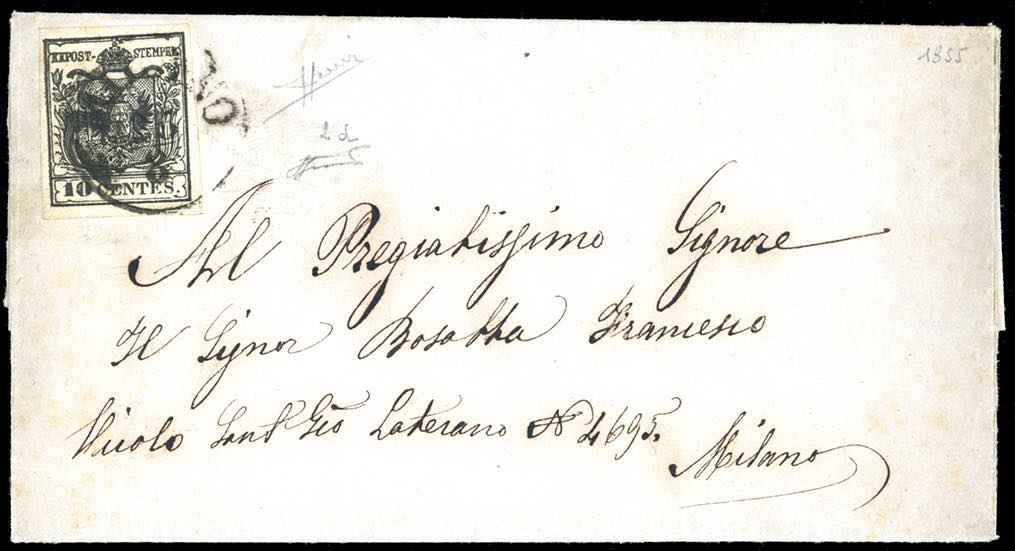 KKPOST-STEMPEL
10 CENTES.
1855
2 d
Al Pregiatissimo Signore
Il Signor Bosatta Francesco
Vicolo Sant Gio Laterano N 4695.
Milano